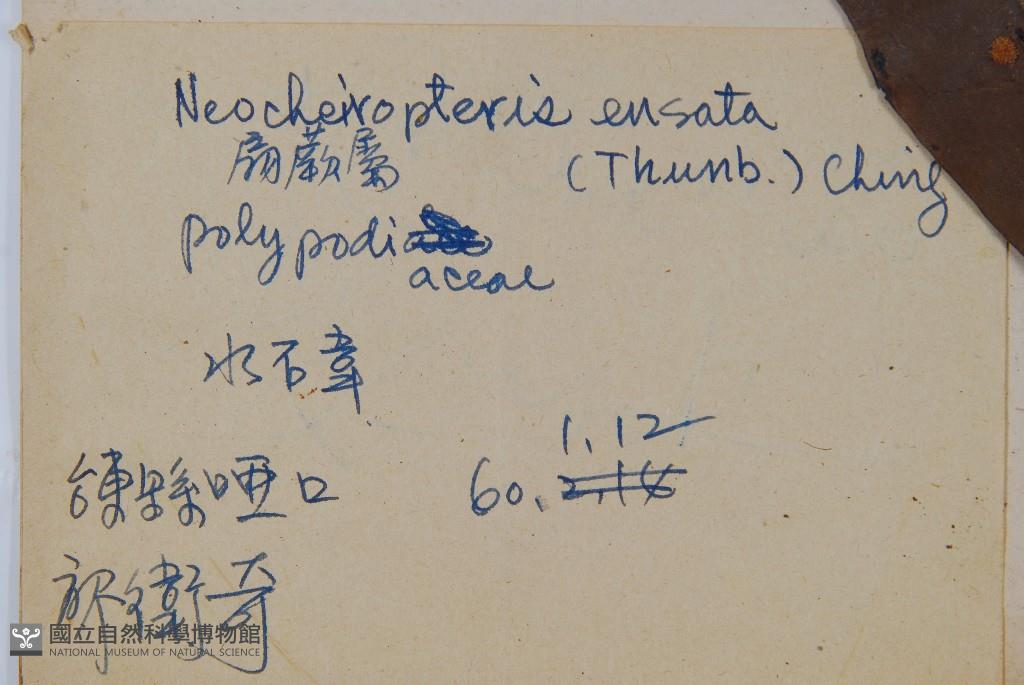 Neocheiropteris ensata
扇蕨屬 (Thunb.) Ching
polypodi
aceae
水石韋
台東縣啞口 60. 1.12
2.14
衛奇
國立自然科學博物館
NATIONAL MUSEUM OF NATURAL SCIENCE